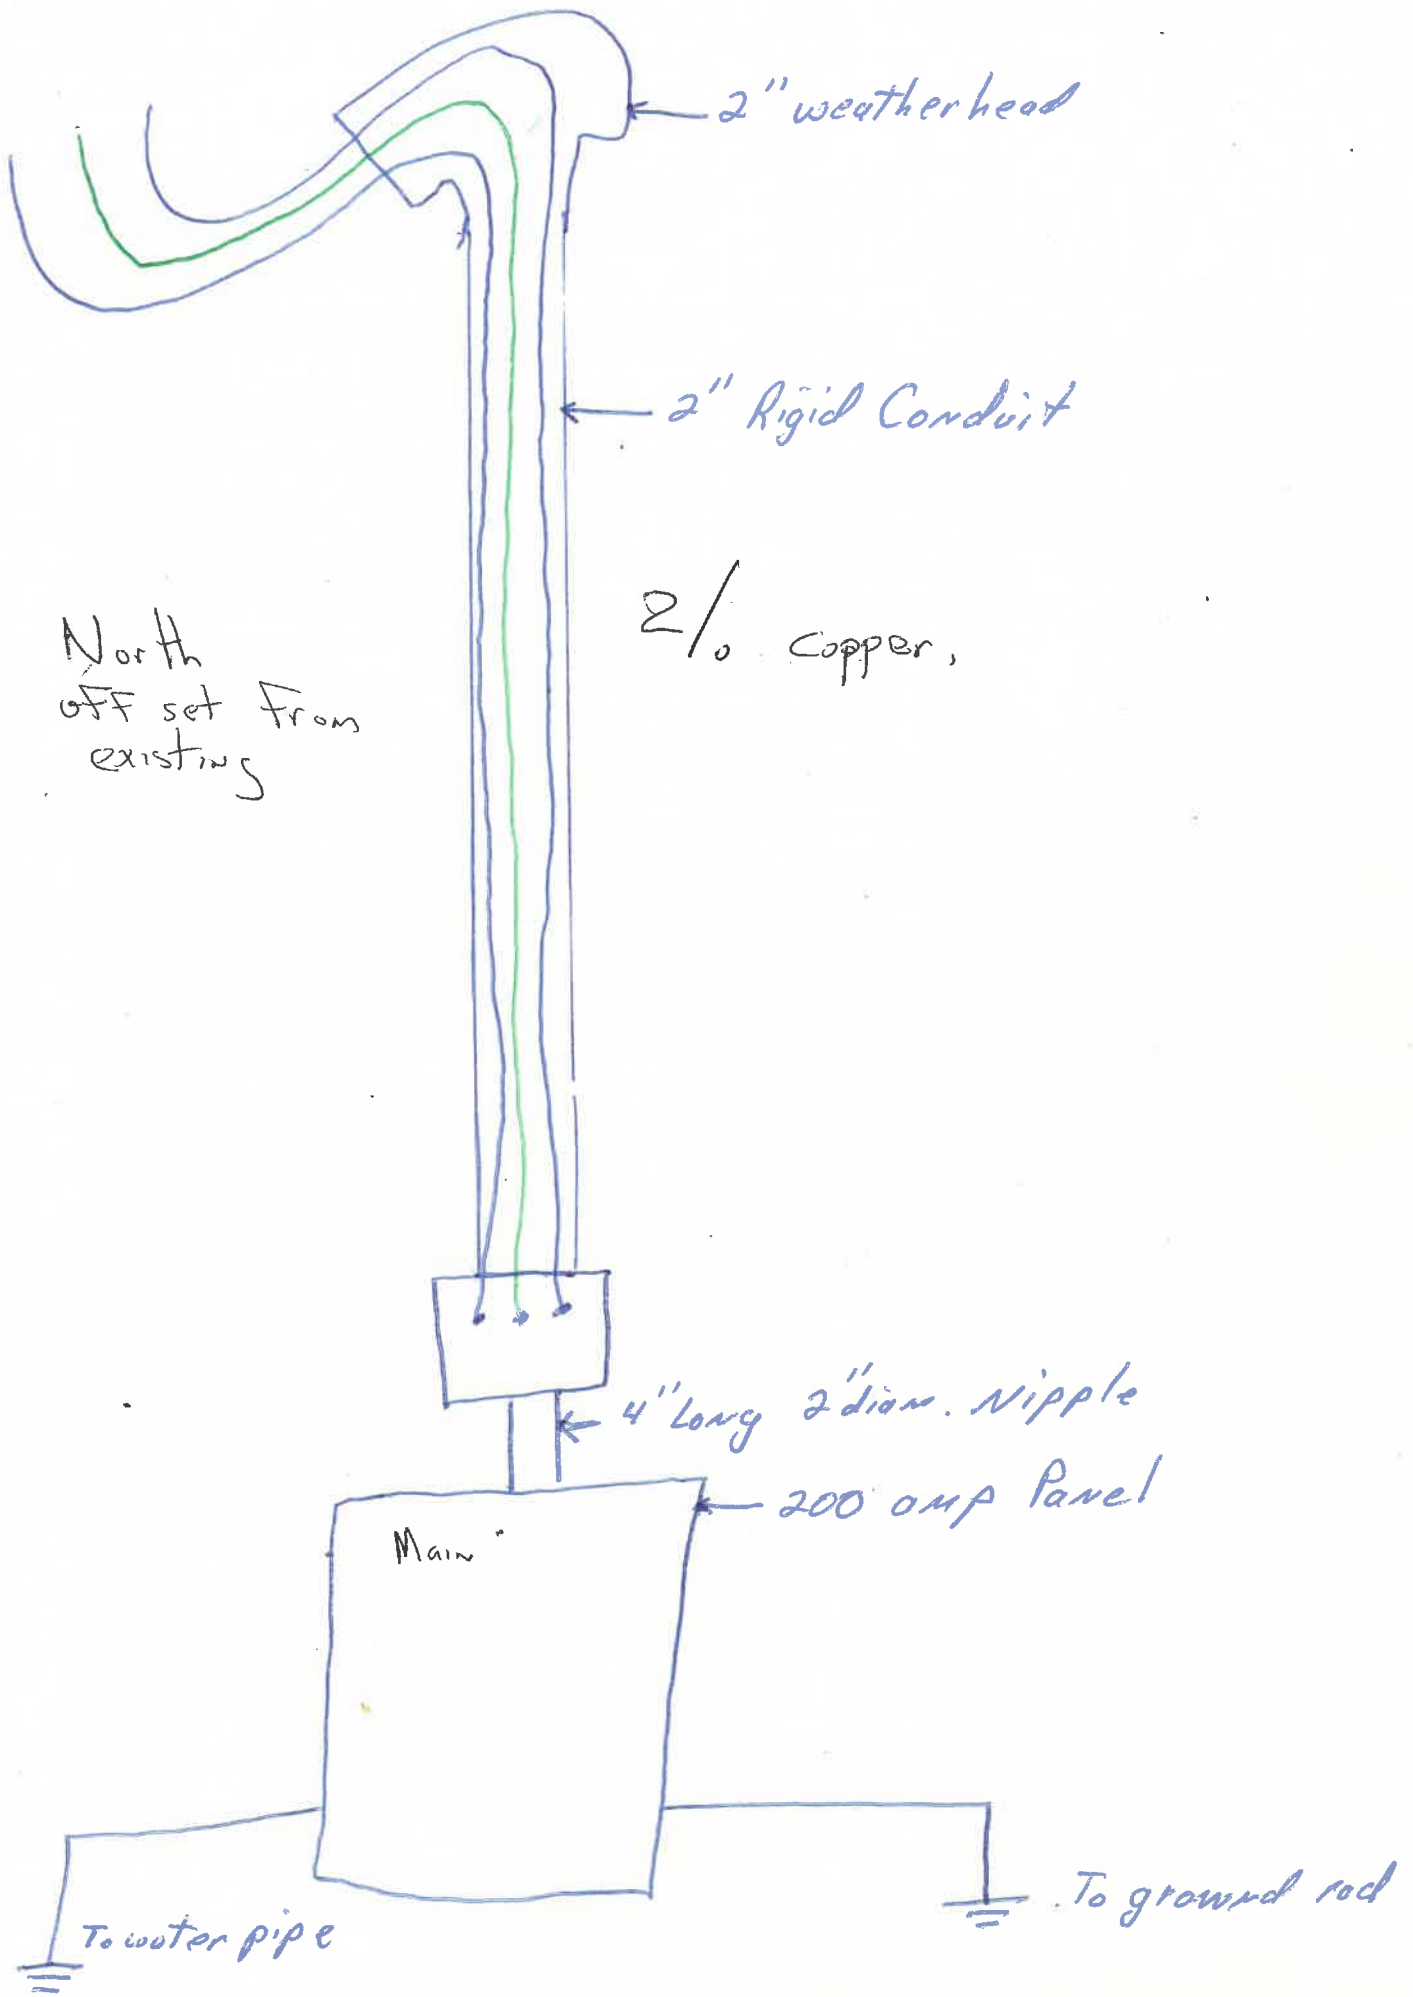 2" weatherhead
2" Rigid Conduit
2/0 copper,
North
off set From
existing
4" Long 2" diam. Nipple
200 amp Panel
Main
To ground rod
To water pipe